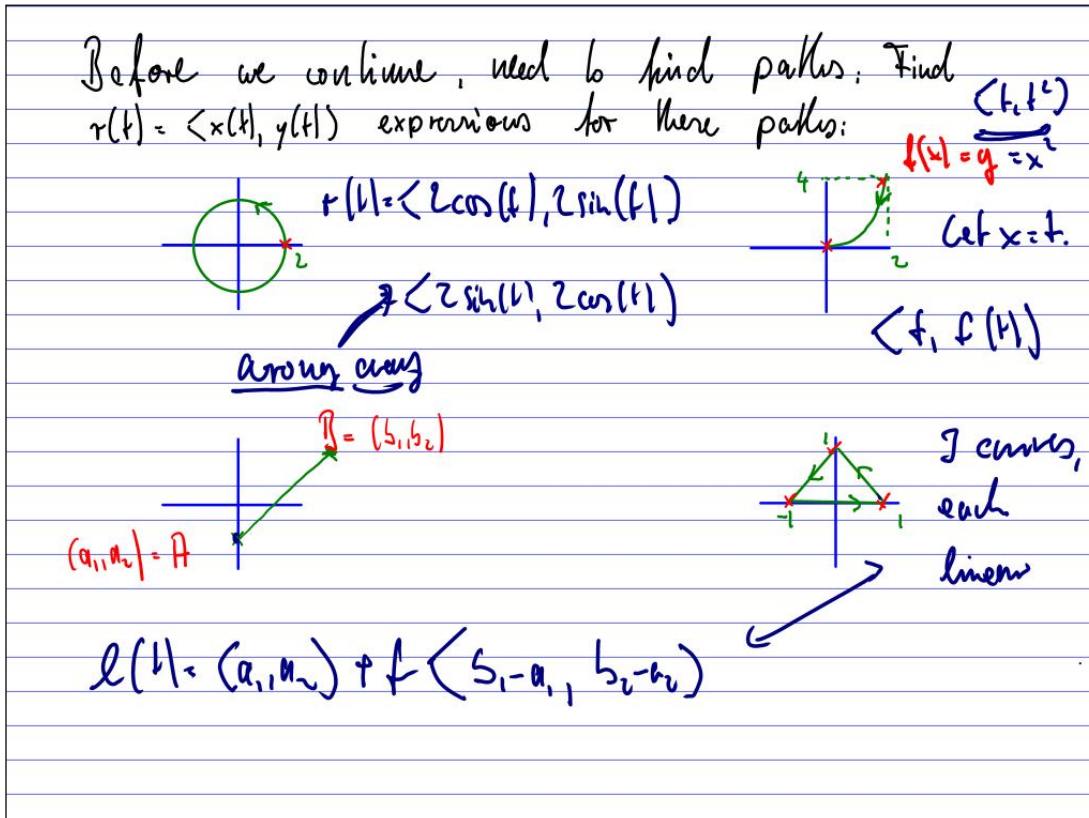 Before we continue, need to find paths. Find
r(t) = <x(t), y(t)> expressions for these paths:
<t, t²>
f(x) = y = x²
r(t) = <2cos(t), 2sin(t)>
2
4
2
Let x = t.
<2sin(t), 2cos(t)>
wrong way
<t, f(t)>
B = (b₁, b₂)
(a₁, a₂) = A
1
-1
1
3 curves,
each
linear
l(t) = (a₁, a₂) + t <b₁-a₁, b₂-a₂>